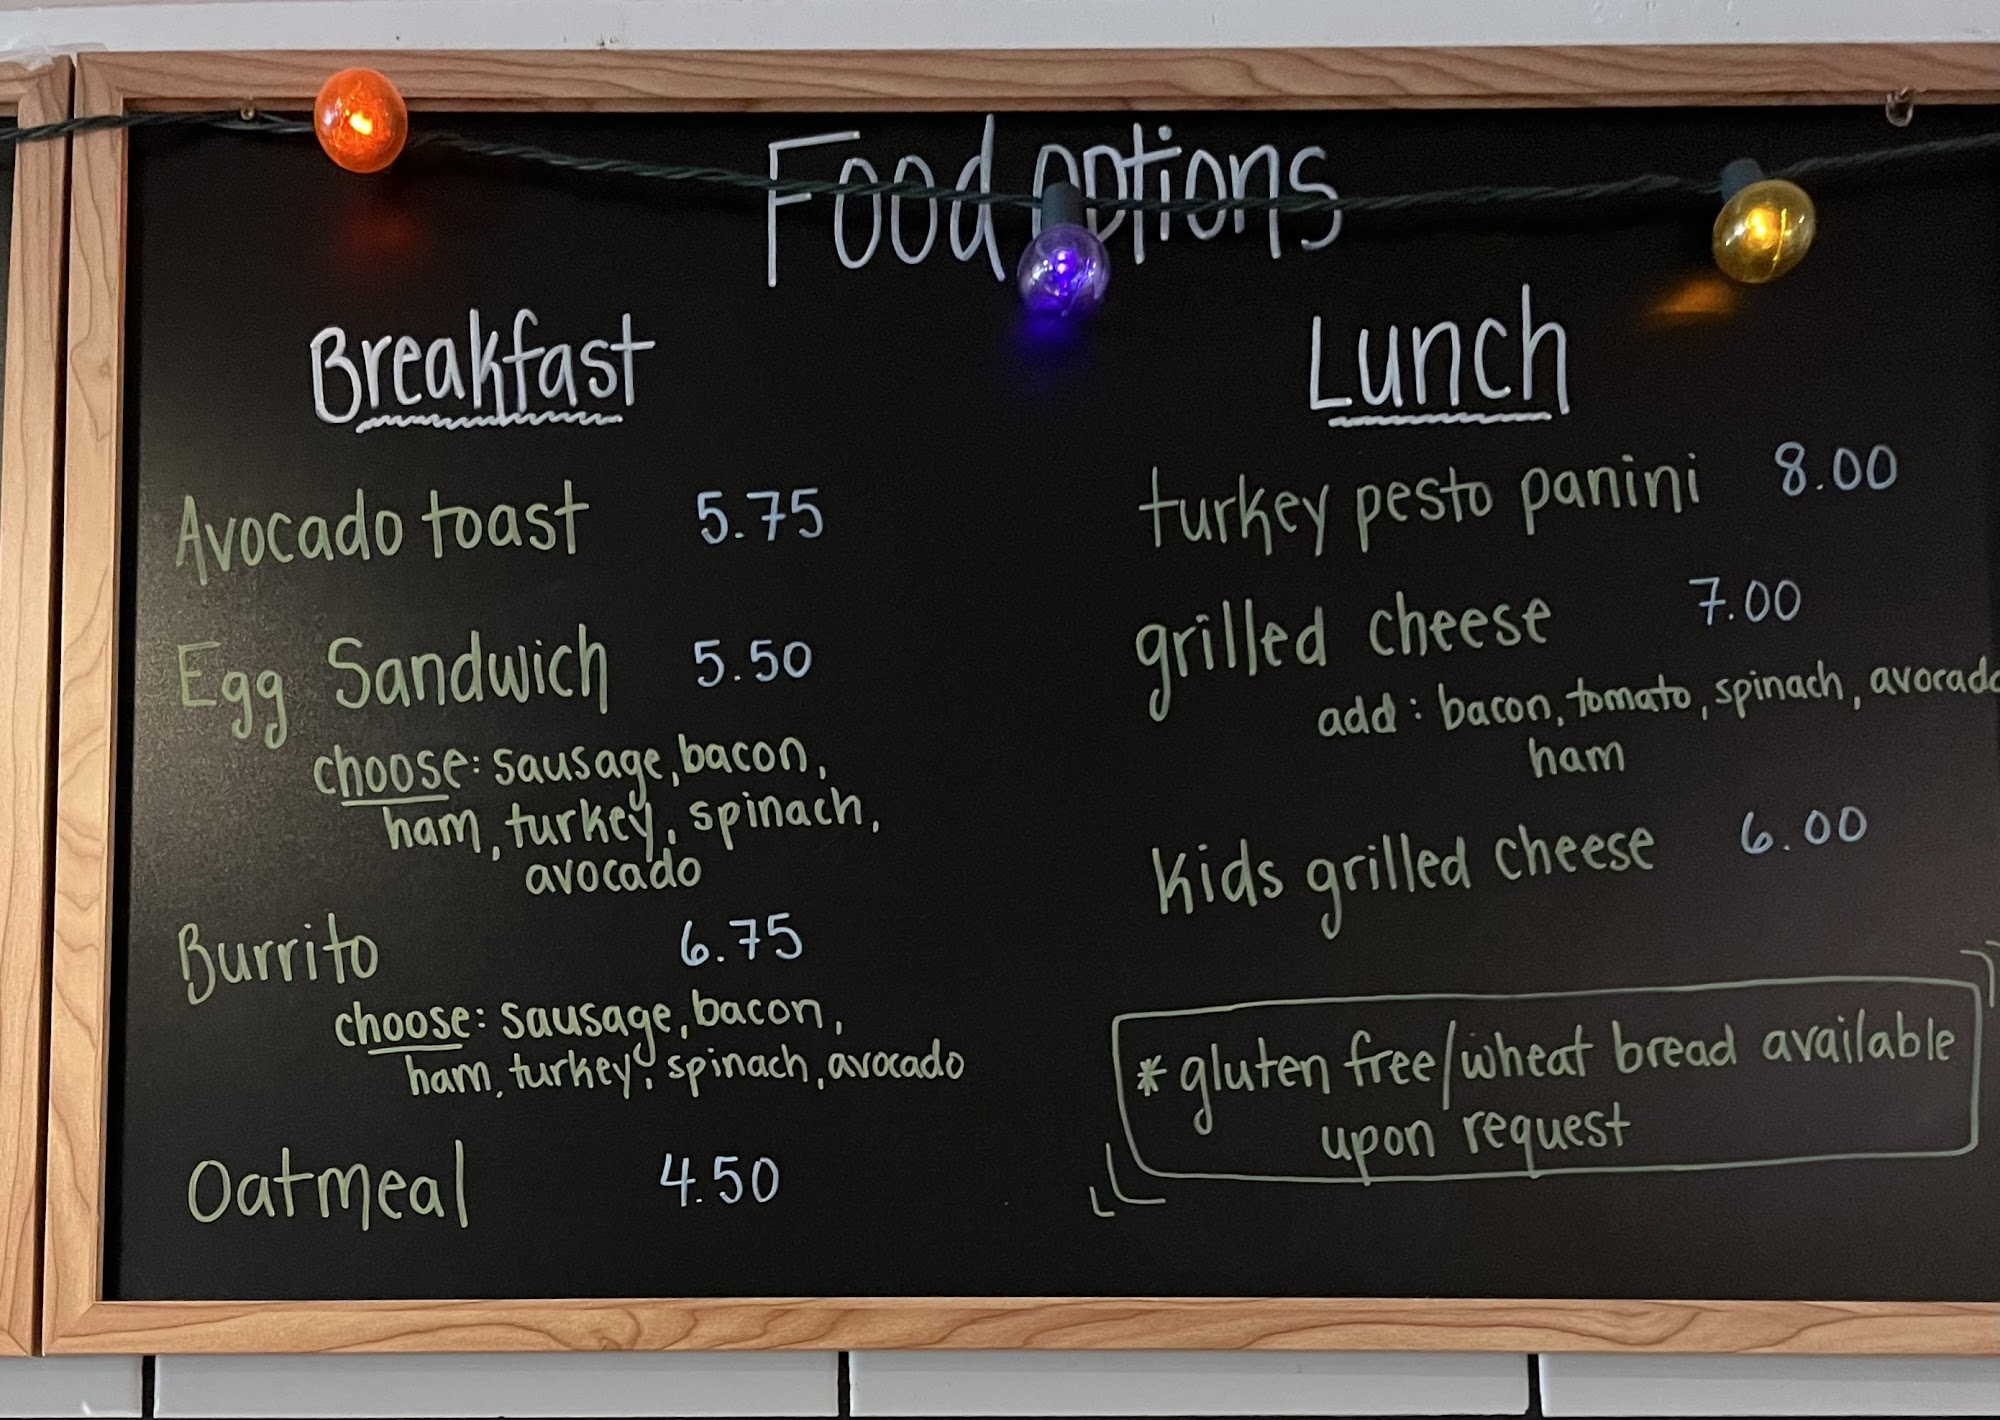 Food options
Breakfast
Avocado toast 5.75
Egg Sandwich 5.50
choose: sausage, bacon,
ham, turkey, spinach,
avocado
Burrito 6.75
choose: sausage, bacon,
ham, turkey, spinach, avocado
Oatmeal 4.50
Lunch
turkey pesto panini 8.00
grilled cheese 7.00
add: bacon, tomato, spinach, avocado
ham
Kids grilled cheese 6.00
* gluten free/wheat bread available
upon request